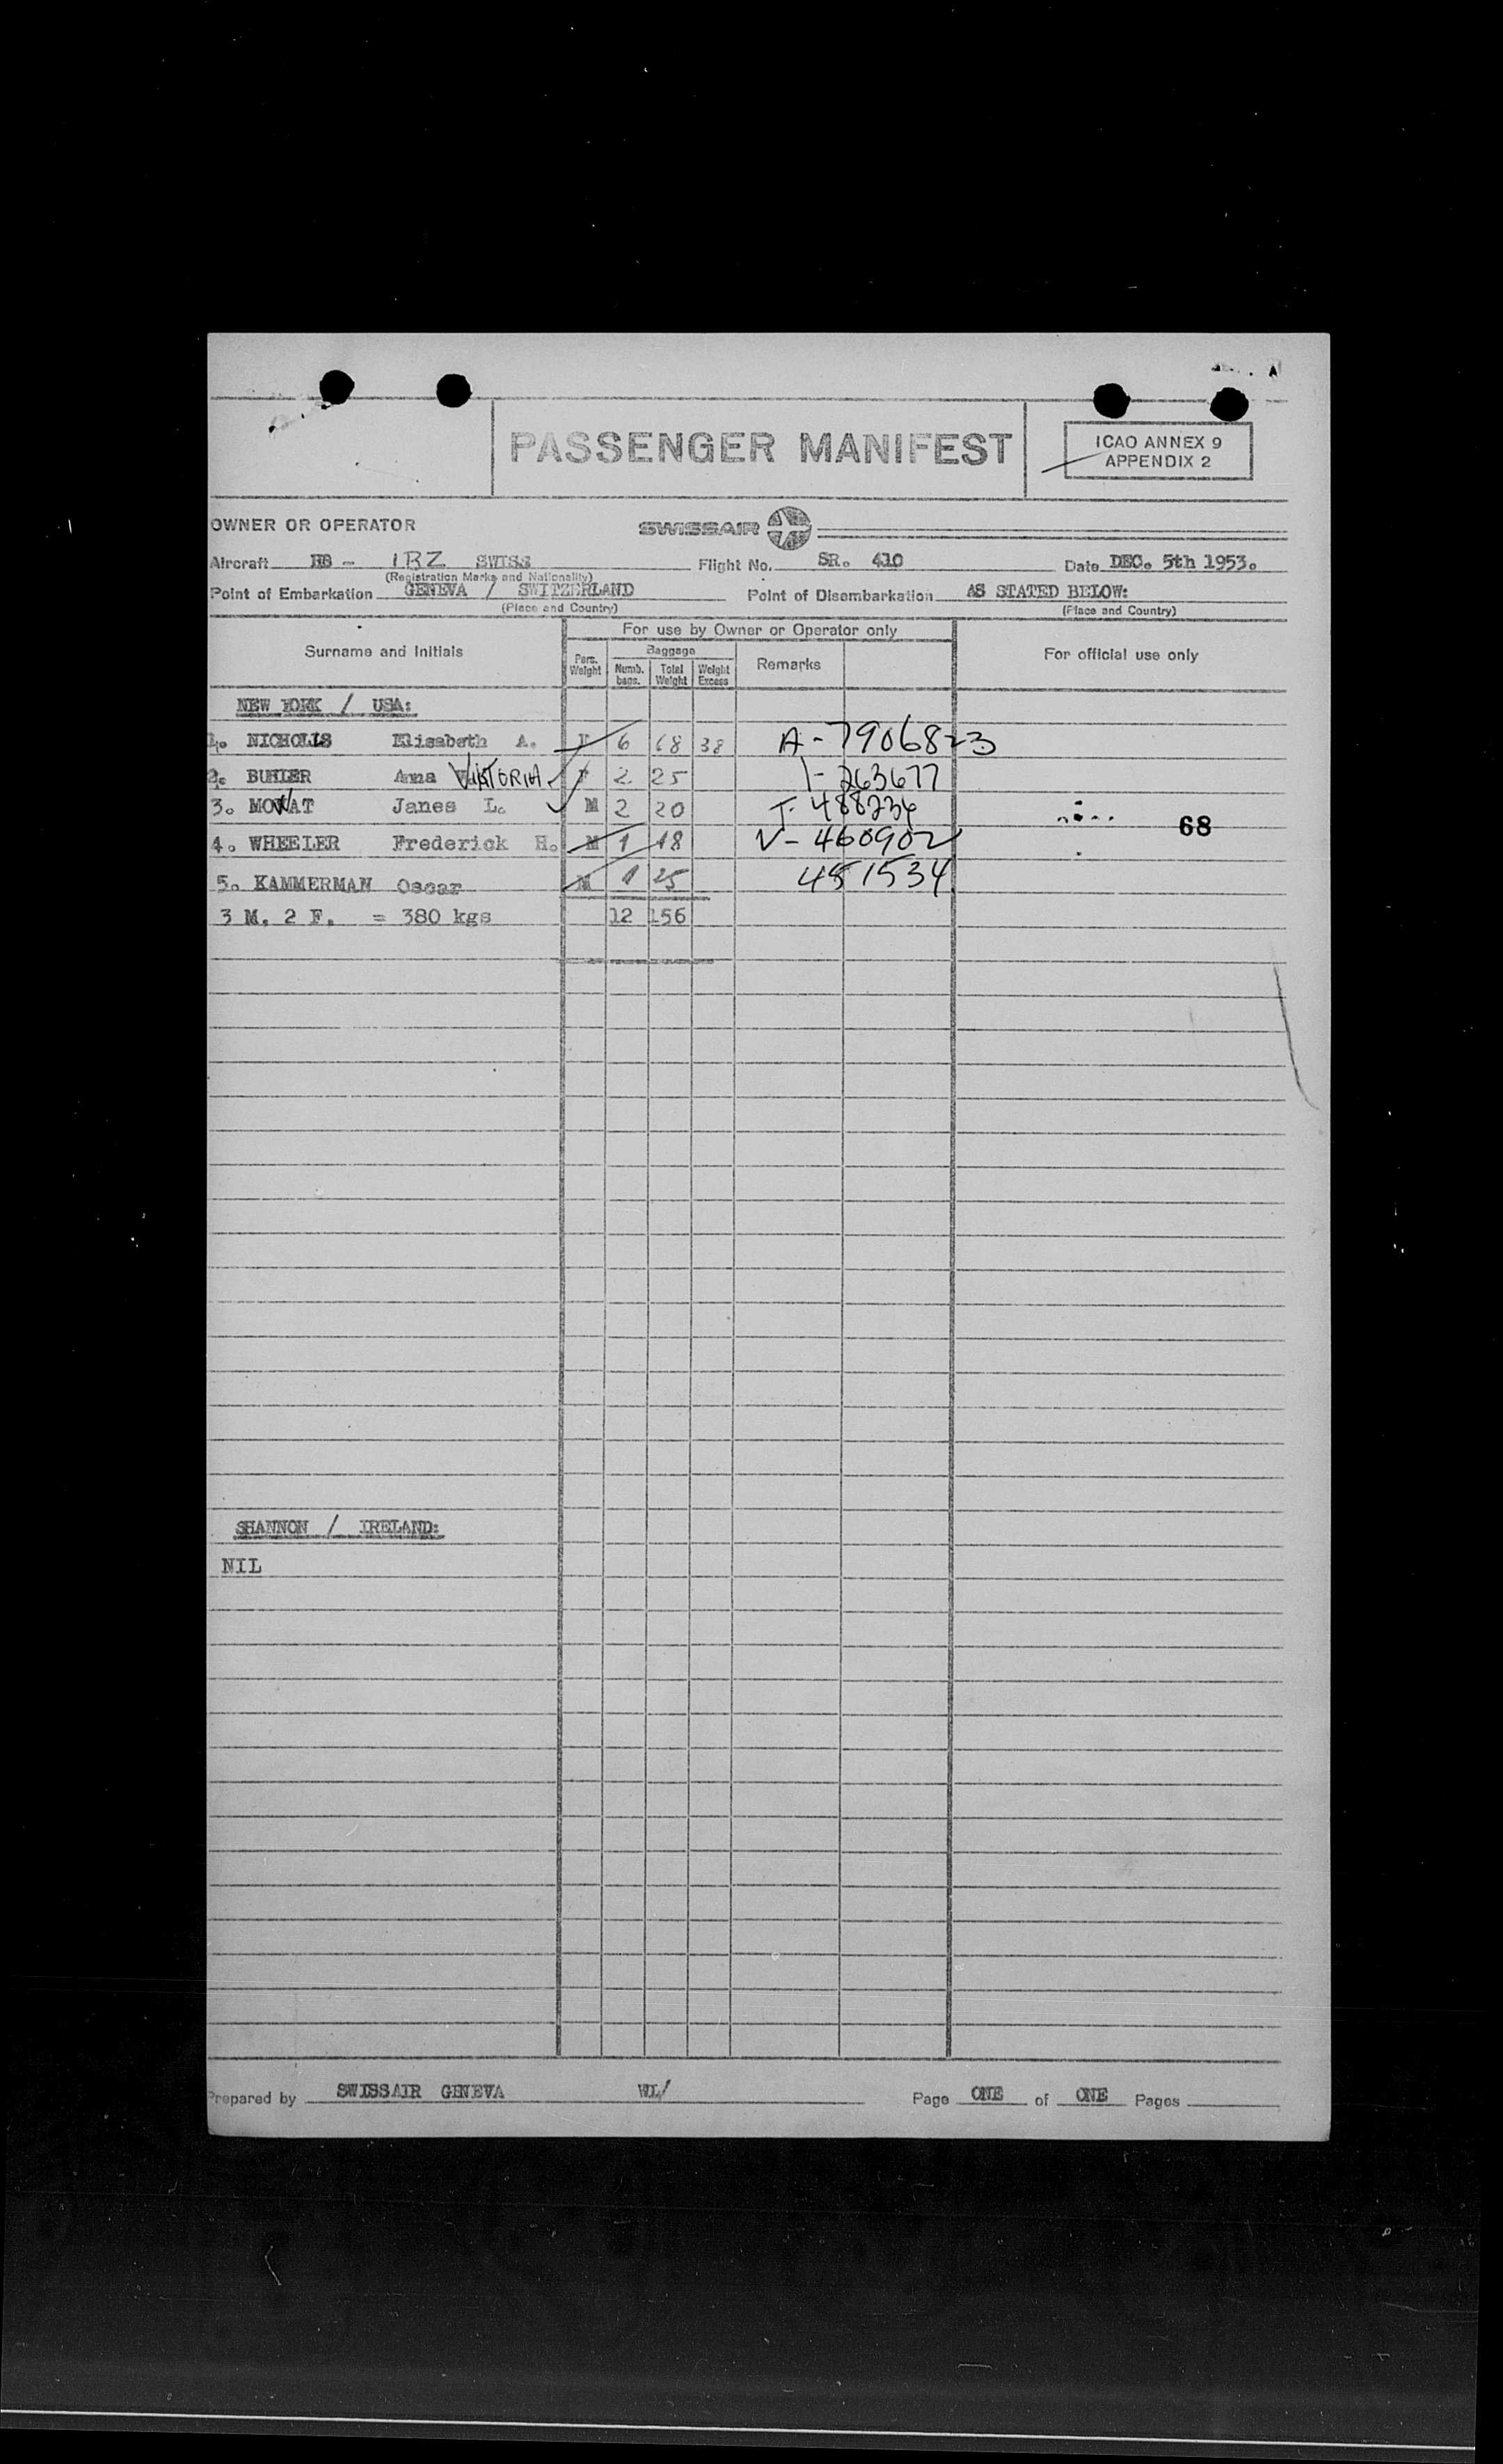 PASSENGER MANIFEST
ICAO ANNEX 9
APPENDIX 2
OWNER OR OPERATOR SWISSAIR
Aircraft HB - IBZ SWISS Flight No. SR. 410 Date DEC. 5th 1953.
(Registration Marks and Nationality)
Point of Embarkation GENEVA / SWITZERLAND Point of Disembarkation AS STATED BELOW:
(Place and Country) (Place and Country)
Surname and Initials
For use by Owner or Operator only
Pers. Weight
Baggage
Numb. bags.
Total Weight
Weight Excess
Remarks
For official use only
NEW YORK / USA:
1. NICHOLLS Elisabeth A. F 6 68 38 A-7906823
2. BUHLER Anna VIKTORIA F 2 25 I-263677
3. MOWAT Janes L. M 2 20 T-488234
68
4. WHEELER Frederick H. M 1 18 V-460902
5. KAMMERMAN Oscar M 1 25 451534
3 M. 2 F. = 380 kgs 12 156
SHANNON / IRELAND:
NIL
Prepared by SWISSAIR GENEVA WL/ Page ONE of ONE Pages